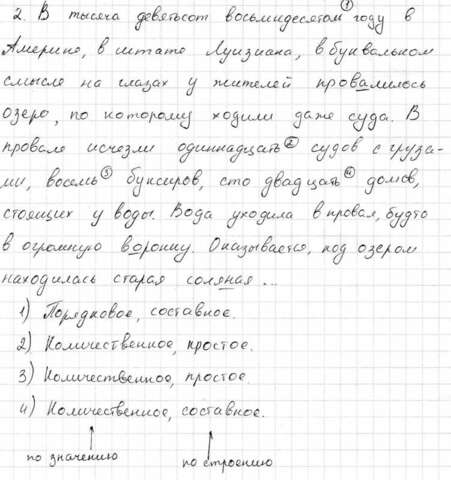 2. В тысяча девятьсот восьмидесятом ① году в
Америке, в штате Луизиана, в буквальном
смысле на глазах у жителей провалилось
озеро, по которому ходили даже суда. В
провале исчезли одиннадцать ② судов с груза-
ми, восемь ③ буксиров, сто двадцать ④ домов,
стоящих у воды. Вода уходила в провал, будто
в огромную воронку. Оказывается, под озером
находилась старая соляная ...
1) Порядковое, составное.
2) Количественное, простое.
3) Количественное, простое.
4) Количественное, составное.
по значению по строению